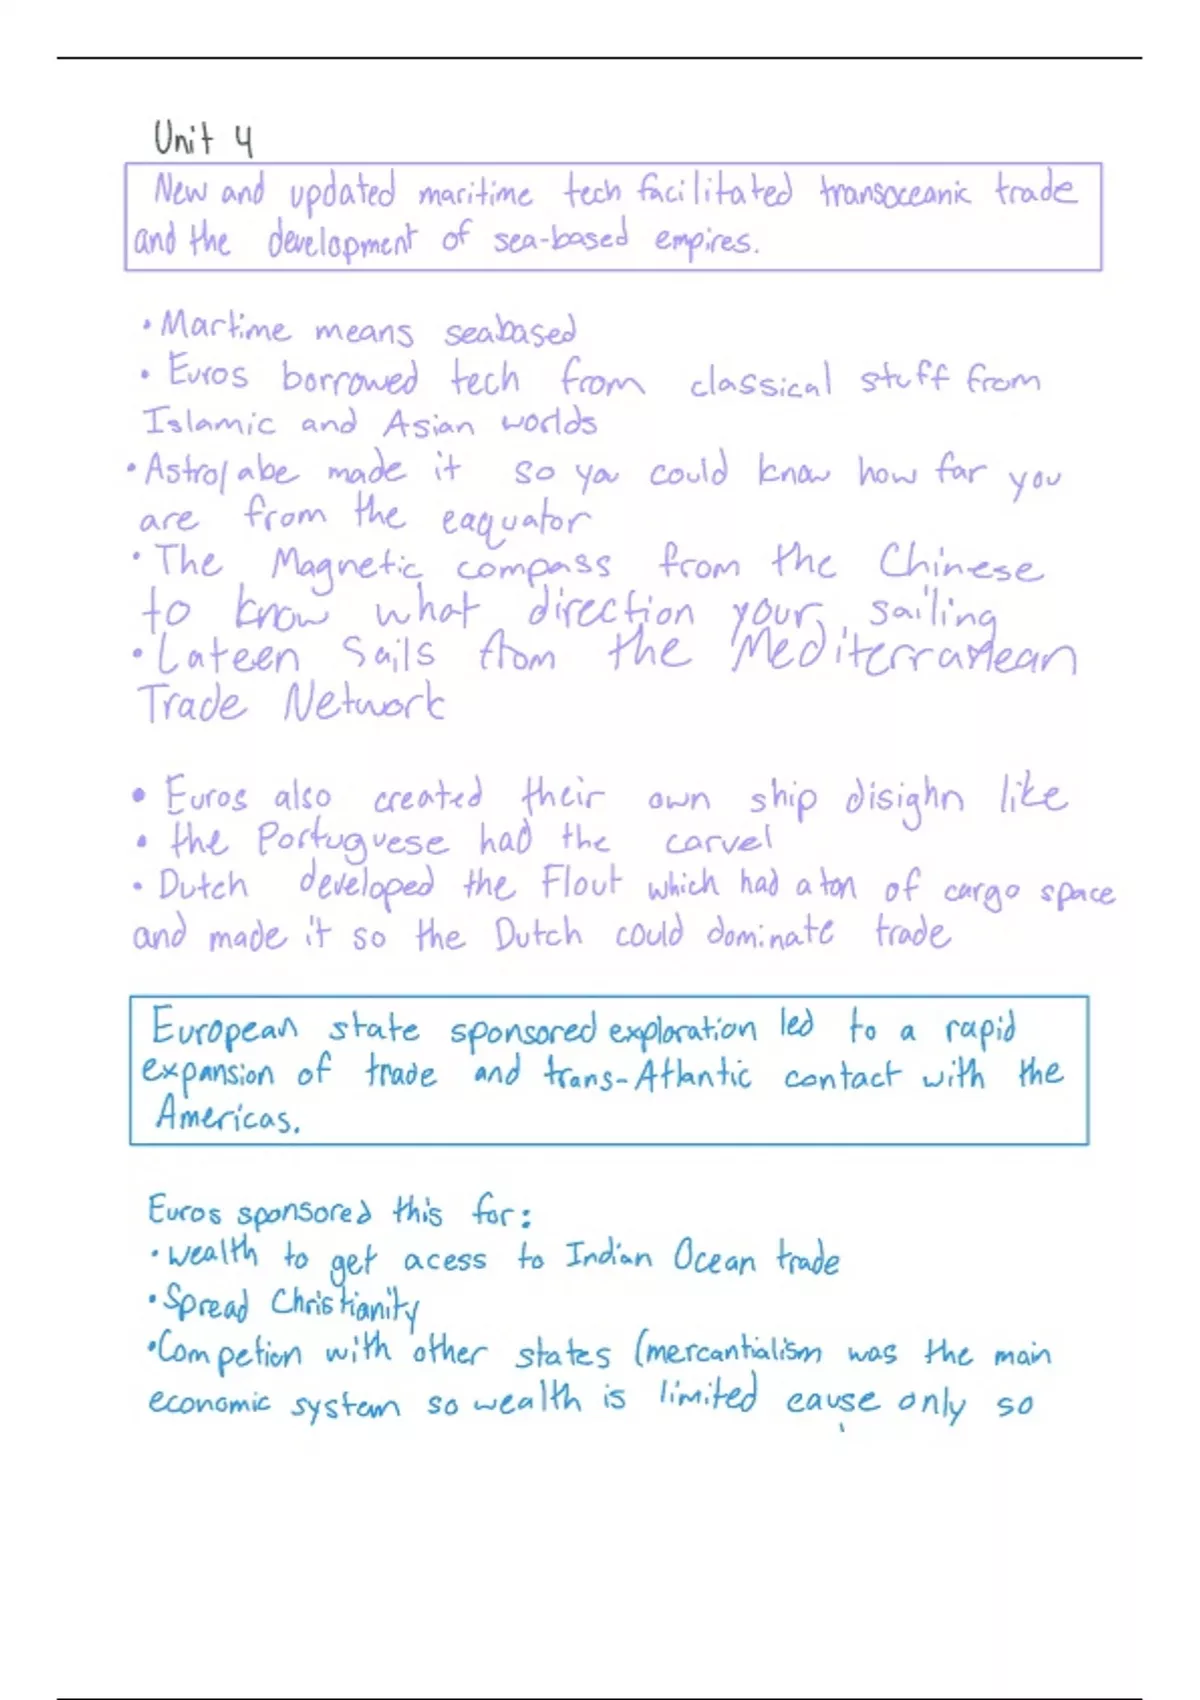 Unit 4
New and updated maritime tech facilitated transoceanic trade
and the development of sea-based empires.
• Martime means seabased
• Euros borrowed tech from classical stuff from
Islamic and Asian worlds
• Astrolabe made it so you could know how far you
are from the eaquator
• The Magnetic compass from the Chinese
to know what direction your sailing
• Lateen Sails from the Mediterranean
Trade Network
• Euros also created their own ship disighn like
• the Portuguese had the carvel
• Dutch developed the Flout which had a ton of cargo space
and made it so the Dutch could dominate trade
European state sponsored exploration led to a rapid
expansion of trade and trans-Atlantic contact with the
Americas.
Euros sponsored this for:
• wealth to get acess to Indian Ocean trade
• Spread Christianity
• Competion with other states (mercantialism was the main
economic system so wealth is limited cause only so